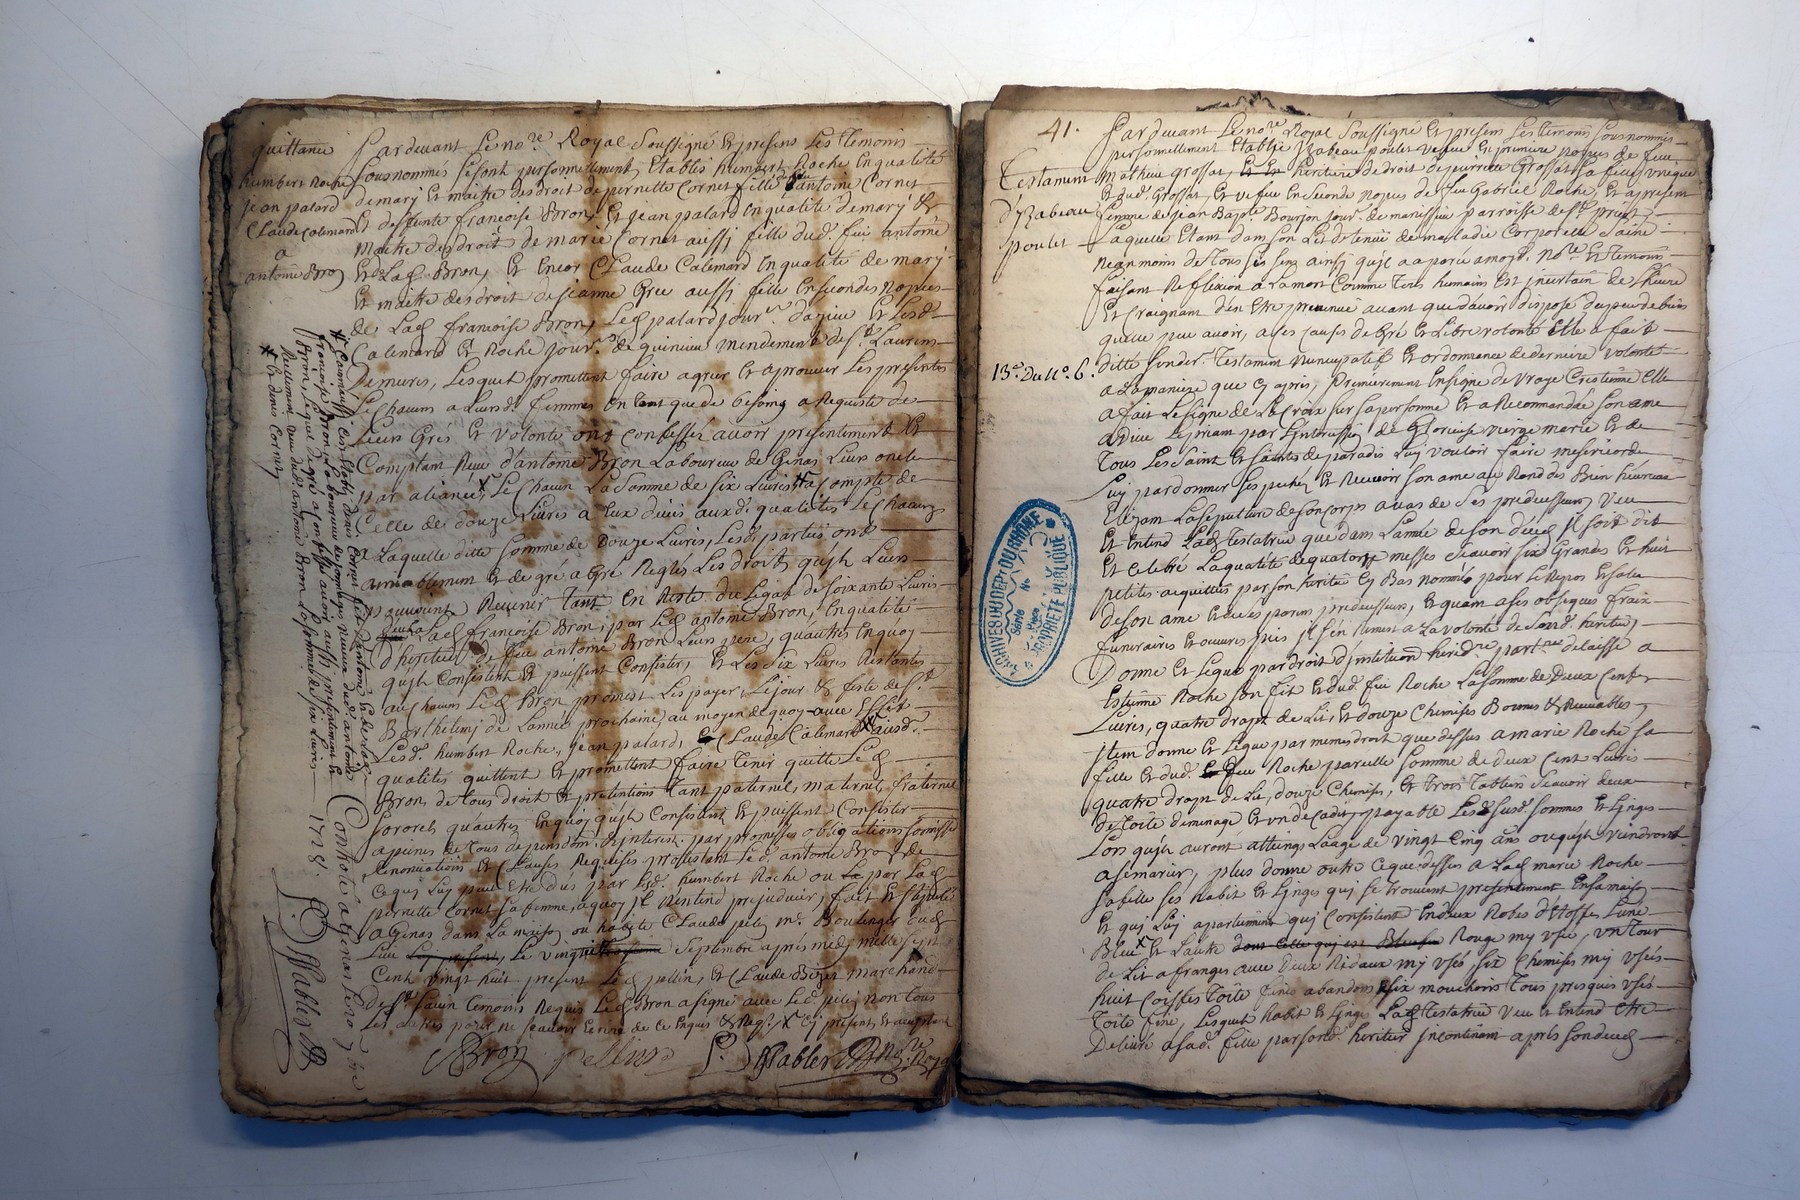 quittance
humbert Roche
jean palard
Claude Calemard
a
antoine Bron
Pardevant Le no.re Royal Soussigné Et presens Les Temoins
Sousnommés se sont personnellement Etablis humbert Roche En qualité
de mary et maitre des droit de pernette Cornet fille d'antoine Cornet
Et deffunte francoise Bron, Et jean palard En qualité de mary &
maitre des droit de marie Cornet aussy fille dud. feu antoine
Et de Lad. Bron, Et Encor Claude Calemard En qualité de mary
Et maitre des droit de jeanne Gree aussy fille En secondes nopces
de Lad. francoise Bron, Led. palard jour.r d'azieu Et Lesd.
Calemard Et Roche jour.s de quinieu mendement de S.t Laurens
De mures, Lesquels promettent faire agreer Et aprouver Les presentes
Le chacuns a Leursd. femmes En tant que de besoins a Requiste de
Leur Grés Et volonté ont Confessés avoir presentement Et
Comptam Reçu d'antoine Bron Laboureur de Genas Leurs oncle
par aliance, Le chacun La Somme de six Livres a compte de
Celle de douze Livres a Eux dües auxd. qualités Le chacuns
a Laquelle ditte Somme de Douze Livres, Lesd. parties ont
amiablement et de gré a Gré Reglés Les droits qu'ils Leurs
pouvoient Revenir Tant En Reste du Legat de soixante Livres
a Lad. francoise Bron, par Led. antoine Bron, En qualité
d'heritier de feu antoine Bron Leurs pere, qu'autres En quoy
qu'ils Consistent Et puissent Consister, Et Les six Livres Restantes
au chacuns Led. Bron promest Les payer Le jour & feste de S.t
Barthelemy de L'année prochaine, au moyen de quoy avec Effet
Lesd. humbert Roche, jean palard, Claude Calemard ausd.
qualités quittent Et promettent faire Tenir quitte Led.
Bron, de tous droit Et pretentions Tant paternel, maternel, fraternel
Sororel, qu'autres En quoy qu'ils Consistent Et puissent Consister
a peines de Tous depens, dom. & interest. par promesses obligations Soumissions
Renonciations Et Clauses Requises protestant Led. antoine Bron de
Ce qui Luy peut Etre dus par Led. humbert Roche ou par Lad.
pernette Cornet Sa femme, a quoy il n'entend prejudicier, fait Et Stipulé
a Genas dans La maison ou habite Claude pelin m.e Boulanger dud.
Lieu Le vingt Septembre après midy mille sept
Cent vingt huit present Led. pellin, Et Claude Bizet marchand
de S.t Savin Temoins Requis Led. Bron a signé avec Led. pelin non tous
Les autres pour ne sçavoir
Bron pellin no.re Royal
Reellement Reçu dud. antoine Bron La somme de six Livres
1728.
41.
Testament
d'yzabeau
poulet
13.e Du N.o 6.
Pardevant Le no.re Royal Soussigné Et presens Les temoins sousnommés
personnellement Etablie yzabeau poulet vefve En premiere nopces de feu
mathieu Grossat, heritiere de droit de pierrette Grossat sa fille unique
Et dud. Grossat, Et vefve En seconde nopces de feu Gabriel Roche, Et a present
femme de jean Bap.te Bourjon jour.r de manissieu parroisse de S.t priest,
Laquelle Etant dans Son Lit detenüe de maladie Corporelle Saine
neanmoins de Tous ses sens ainsy qu'il a aparu a moyd. No.re Et Temoins
faisant Reflexion a La mort Comme Tous humains Est incertain de L'heure
Et Craignant d'en Etre prevenüe avant que d'avoir disposé du peu de bien
qu'elle peut avoir, a Ces Causes de Gré Et Libre volonté Elle a fait
ditte Son der. Testament Nuncupatif Et ordonnance de derniere volonté
a La maniere que Cy après, Premierement En signe de vraye Crestienne Elle
a fait Le signe de La Croix sur sa personne Et a Recommandée son ame
a dieu Le priant par L'intercession de la Glorieuse vierge marie Et de
Tous Les Saint Et Saintes de paradis Luy vouloir faire misericorde
Luy pardonner ses pechés Et Recevoir son ame au Rand des Bien heureux
Elizant La sepulture de son corps a vas de Ses predecesseurs, veu
Et Entend Lad. Testatrice que dans L'année de son décès il soit dit
Et Celebré La quatité de quatorze messes sçavoir six Grandes Et huit
petites acquittés par son heritier Cy Bas nommé pour Le Repos Et salu
de son ame Et de Ces parens predecesseurs, Et quant a ses obseques fraix
funeraires Et œuvres pies il s'en Remest a La volonté de Sond. heritier,
Donne Et Legue par droit d'institution hered.re part.re delaisse a
Estienne Roche son fils Et dud. feu Roche La Somme de Deux Cents
Livres, quatre drapt de Lit, Et douze Chemises Bonnes & Recevables,
jtem donne Et Legue par mesmes droit que dessus a marie Roche sa
fille Et dud. feu Roche pareille Somme de deux Cent Livres
quatre drapt de Lit, douze Chemises, Et Trois Tabliers sçavoir deux
de Toile de menage Et un de Cadis, payable Lesd. susd. Sommes Et Linges
Lors qu'ils auront atteins L'aage de vingt Cinq ans ou qu'ils viendront
a Se marier, plus donne outre Ce que dessus a Lad. marie Roche
sa fille Ses habit Et Linges qui se trouveront presentement En sa maison
Et qui Luy apartiennent qui Consistent En deux Robes d'Etoffes L'une
Bleu Et L'autre Rouge my usée, un Tour
de Lit a franges avec Deux Rideaux my usés six Chemises my usés
huit Coeffes Toile six mouchoirs Tous presques usés
Toile fine, Lesquels habit Et Linge Lad. Testatrice veu Et Entend Etre
Delivré a Sad. fille par Sond. heritier incontinent après Son decès
ARCHIVES DU DEP.T DU RHÔNE
Série
N°
PROPRIÉTÉ PUBLIQUE